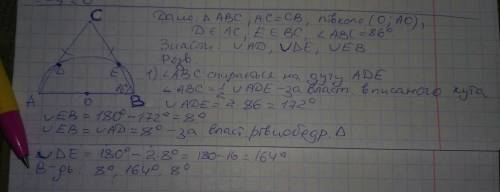 Дано: △ABC, AC=CB, півколо (O; AO),
D∈AC, E∈BC, ∠ABC=86°
Знайти: ∪AD, ∪DE, ∪EB
Розв.
C
D
E
86°
A
O
B
1) ∠ABC спирається на дугу ADE
∠ABC=½ ∪ADE - за власт. вписаного кута
∪ADE=2·86=172°
∪EB=180°-172°=8°
∪EB=∪AD=8° - за власт. рівнобедр. △
∪DE=180°-2·8°=180-16=164°
В-дь: 8°, 164°, 8°